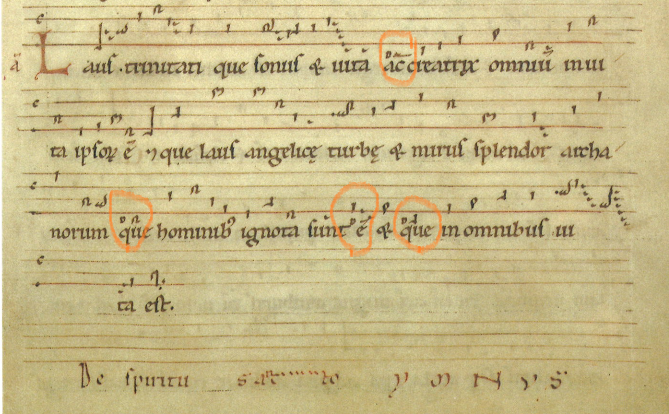 Laus trinitati que sonus & uita ac creatrix omniū in ui
ta ipsoꝝ ē ⁊ que laus angelicę turbę & mirus splendor archa
norum que hominibꝰ ignota sunt ē & que in omnibus ui
ta est.
De spiritu sancto